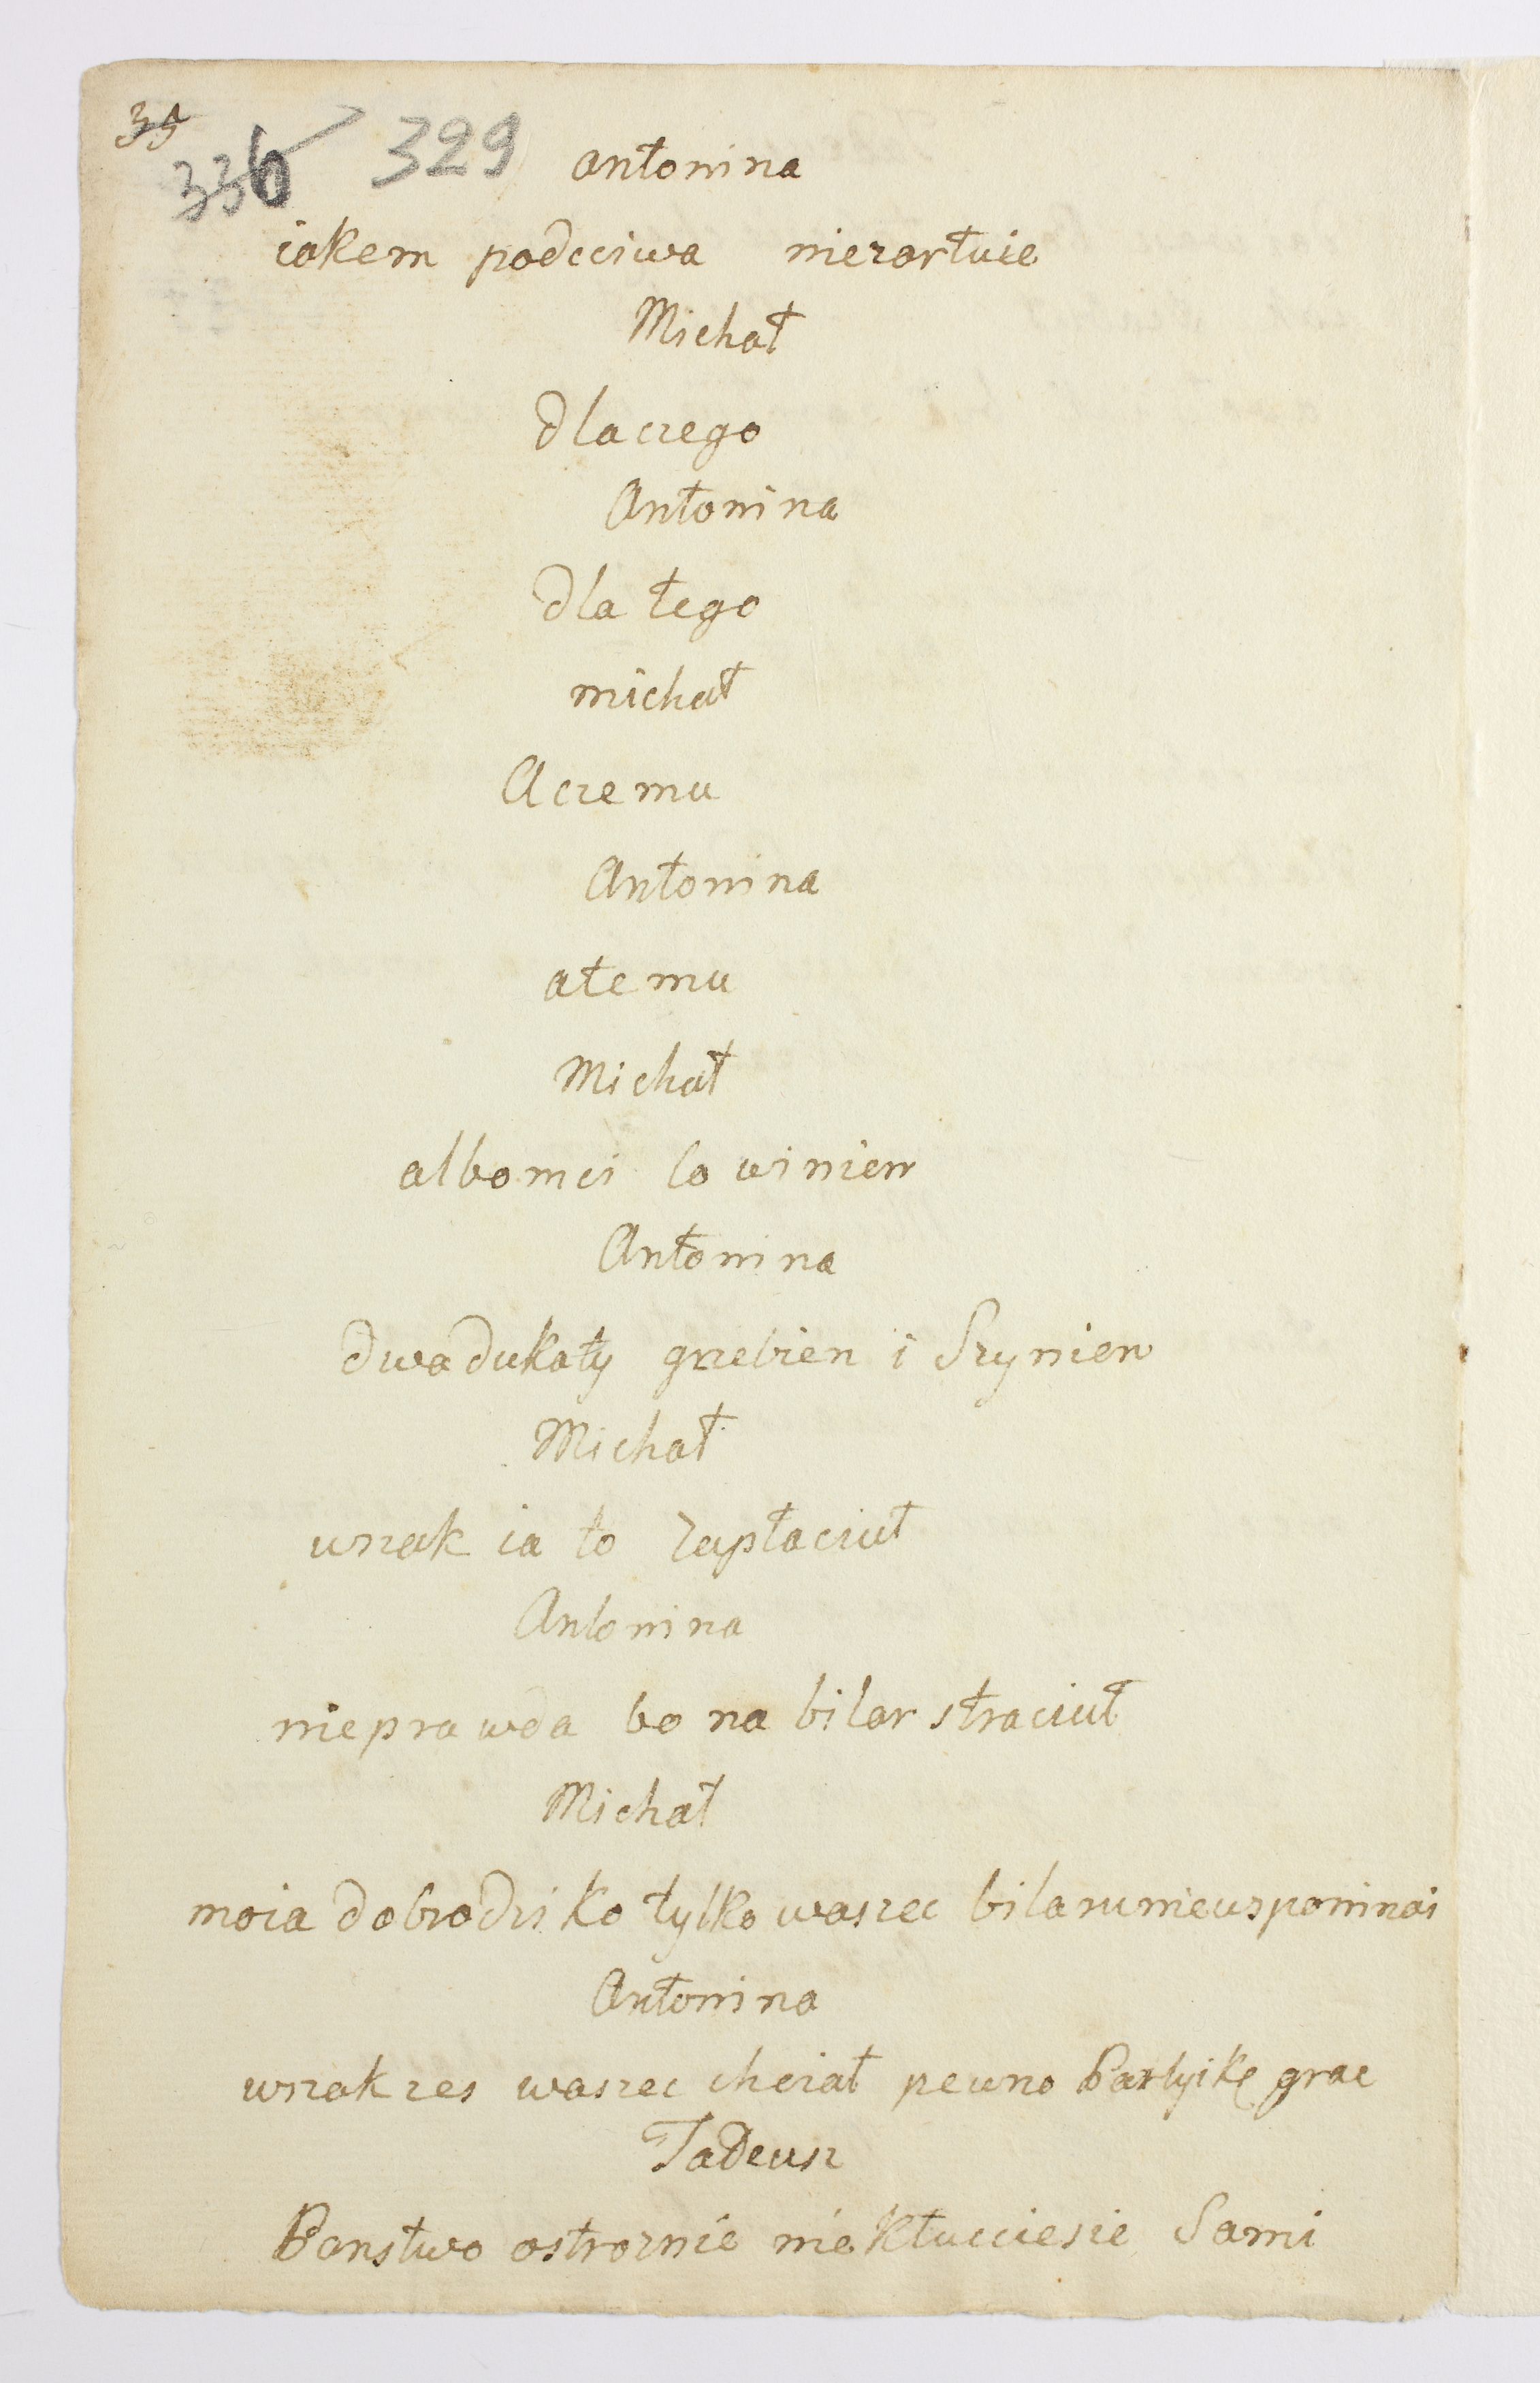 35
336 329 antonina
iakem podcciwa nierartuie
Michał
dlaczego
Antonina
dla tego
michał
Aczemu
Antonina
atemu
Michał
albomci co winien
Antonina
dwadukaty grzebien i Szynion
Michał
wszak ia to zapłaciuł
Antonina
nieprawda bo na bilar straciuł
Michał
moia dobrodziko tylko waszec bilarunieuspominai
Antonina
wszakzes waszec chciał pewno Partyikę grac
Tadeusz
Panstwo ostroznie niekłucciesie Sami